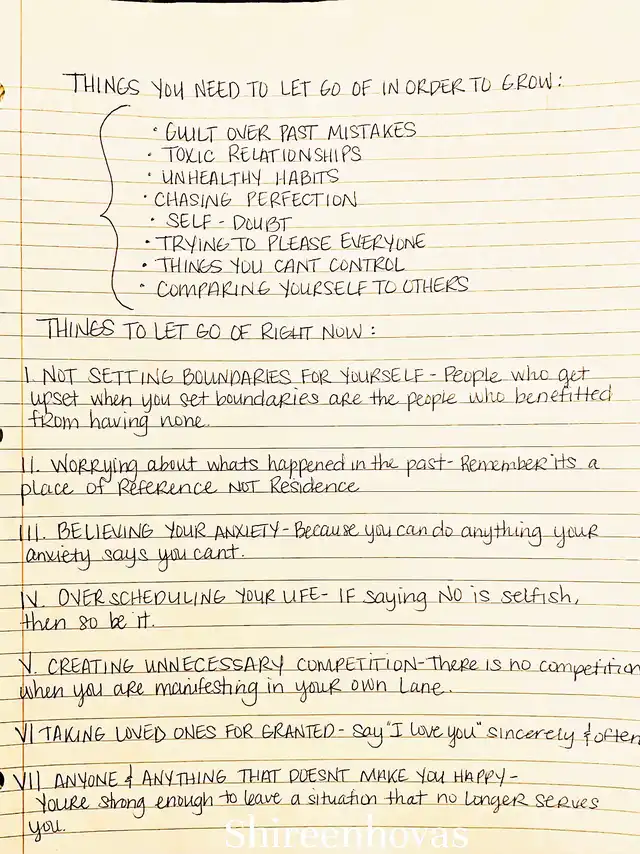 THINGS YOU NEED TO LET GO OF IN ORDER TO GROW:
• GUILT OVER PAST MISTAKES
• TOXIC RELATIONSHIPS
• UNHEALTHY HABITS
• CHASING PERFECTION
• SELF-DOUBT
• TRYING TO PLEASE EVERYONE
• THINGS YOU CANT CONTROL
• COMPARING YOURSELF TO OTHERS
THINGS TO LET GO OF RIGHT NOW:
I. NOT SETTING BOUNDARIES FOR YOURSELF - People who get
upset when you set boundaries are the people who benefitted
from having none.
II. Worrying about whats happened in the past - Remember its a
place of Reference NOT Residence
III. BELIEVING YOUR ANXIETY - Because you can do anything your
anxiety says you cant.
IV. OVER SCHEDULING YOUR LIFE - IF saying NO is selfish,
then so be it.
V. CREATING UNNECESSARY COMPETITION - There is no competition
when you are manifesting in your own Lane.
VI TAKING LOVED ONES FOR GRANTED - say "I love you" sincerely & often
VII ANYONE & ANYTHING THAT DOESNT MAKE YOU HAPPY -
Youre strong enough to leave a situation that no longer serves
you.
Shireenhovas